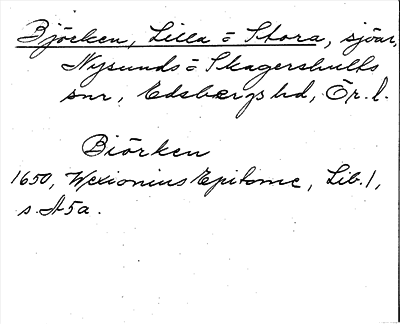 Björken, Lilla = Stora, sjöar,
Nysunds = Skagershults
snr, Edsbergs hd, Ör. l.
Biörken
1650, Wexionius Epitome, Lib. 1,
s. A5a.